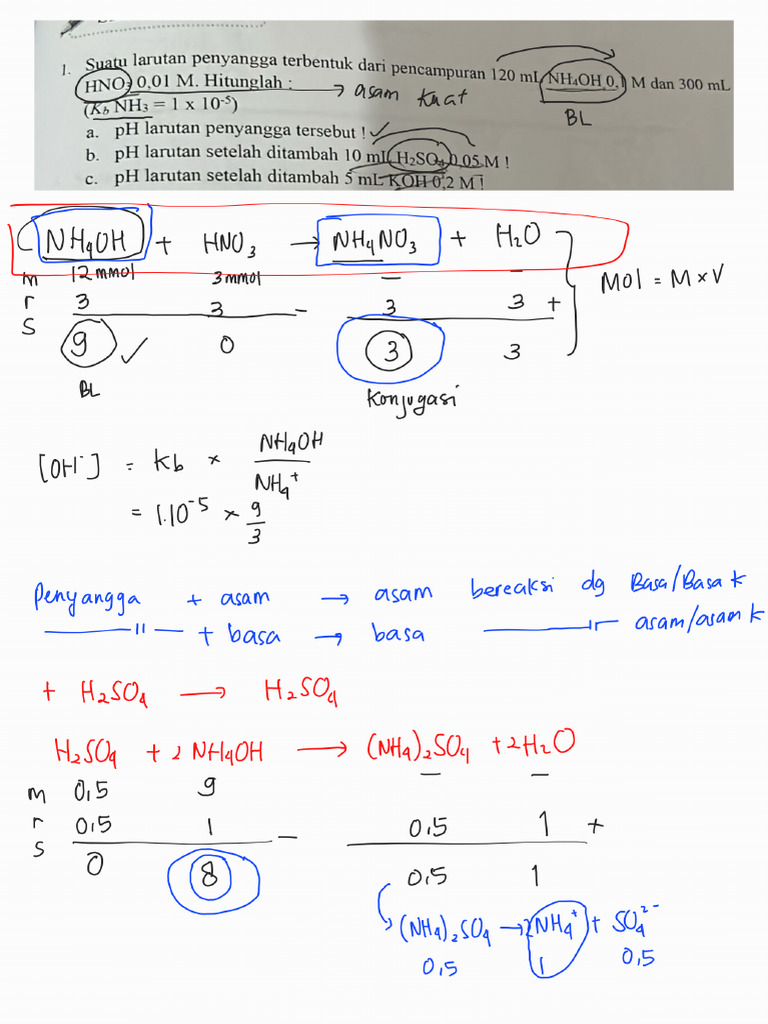 1. Suatu larutan penyangga terbentuk dari pencampuran 120 mL NH₄OH 0,1 M dan 300 mL
HNO₃ 0,01 M. Hitunglah : → asam kuat
BL
(Kb NH₃ = 1 x 10⁻⁵)
a. pH larutan penyangga tersebut ! ✓
b. pH larutan setelah ditambah 10 mL H₂SO₄ 0,05 M !
c. pH larutan setelah ditambah 5 mL KOH 0,2 M !
NH₄OH + HNO₃ → NH₄NO₃ + H₂O
m 12 mmol 3 mmol – –
Mol = M × V
r 3 3 – 3 3 +
s 9 ✓ 0 3 3
BL Konjugasi
[OH⁻] = kb × NH₄OH / NH₄⁺
= 1.10⁻⁵ × 9/3
Penyangga + asam → asam bereaksi dg Basa/Basa k
—— 11 — + basa → basa —— 11 — asam/asam k
+ H₂SO₄ → H₂SO₄
H₂SO₄ + 2 NH₄OH → (NH₄)₂SO₄ + 2H₂O
m 0,5 9 – –
r 0,5 1 – 0,5 1 +
s 0 8 0,5 1
(NH₄)₂SO₄ → 2NH₄⁺ + SO₄²⁻
0,5 1 0,5